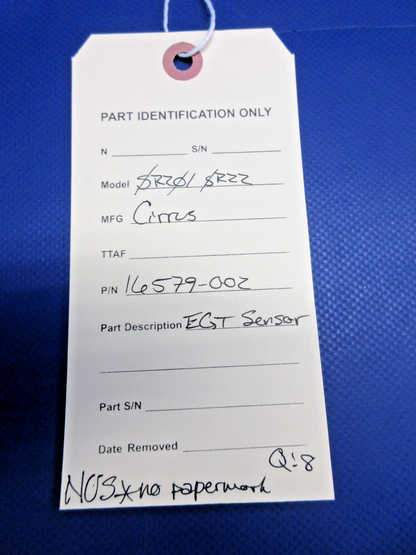 PART IDENTIFICATION ONLY
N S/N
Model SR20/ SR22
MFG Cirrus
TTAF
P/N 16579-002
Part Description EGT Sensor
Part S/N
Date Removed
Q:8
NOS*no paperwork